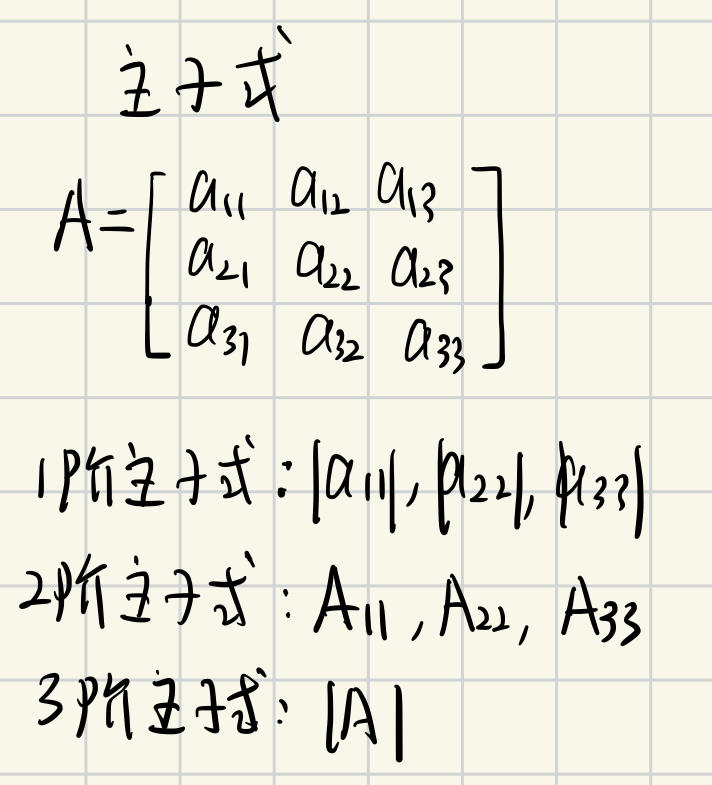 主子式
A=[a₁₁ a₁₂ a₁₃
a₂₁ a₂₂ a₂₃
a₃₁ a₃₂ a₃₃]
1阶主子式:|a₁₁|,|a₂₂|,|a₃₃|
2阶主子式:A₁₁,A₂₂,A₃₃
3阶主子式:|A|